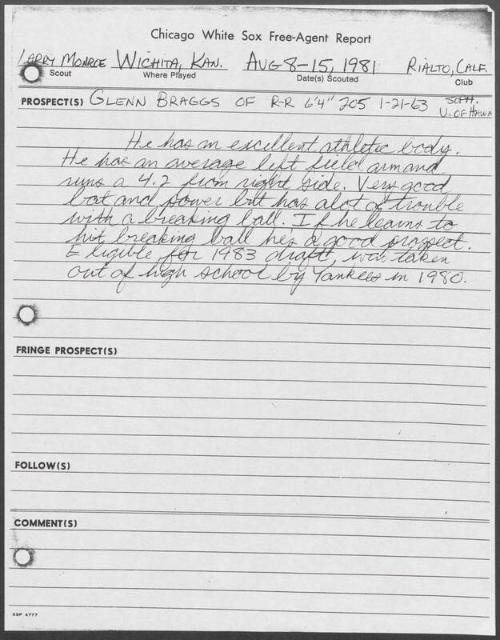 Chicago White Sox Free-Agent Report
Larry Monroe Wichita, Kan. Aug 8-15, 1981 Rialto, Calif.
Scout Where Played Date(s) Scouted Club
PROSPECT(S) Glenn Braggs OF R-R 6'4" 205 1-21-63 Soph.
U. of Hawaii
He has an excellent athletic body.
He has an average left field arm and
runs a 4.2 from right side. Very good
bat and power but has alot of trouble
with a breaking ball. If he learns to
hit breaking ball hes a good prospect.
Eligible for 1983 draft, was taken
out of high school by Yankees in 1980.
FRINGE PROSPECT(S)
FOLLOW(S)
COMMENT(S)